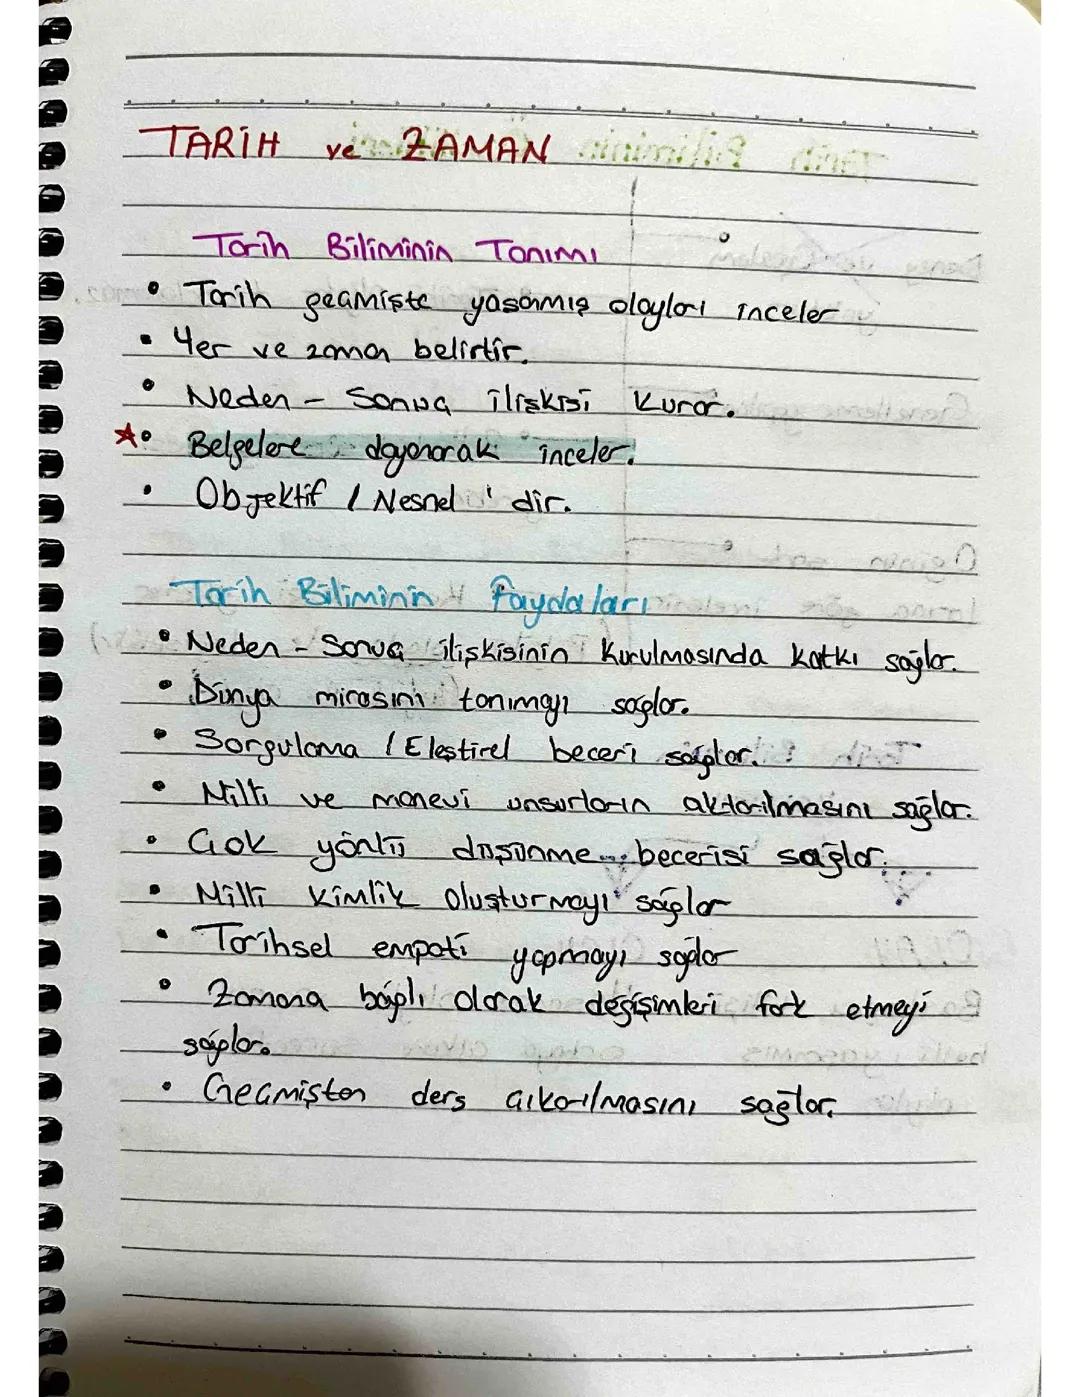 TARİH ve ZAMAN
Tarih Biliminin Tanımı
• Tarih geçmişte yaşanmış olayları inceler
• Yer ve zaman belirtir.
• Neden - Sonuç ilişkisi kurar.
★• Belgelere dayanarak inceler.
• Objektif / Nesnel ' dir.
Tarih Biliminin Faydaları
• Neden - Sonuç ilişkisinin kurulmasında katkı sağlar.
• Dünya mirasını tanımayı sağlar.
• Sorgulama / Eleştirel beceri sağlar.
• Milli ve manevi unsurların aktarılmasını sağlar.
• Çok yönlü düşünme becerisi sağlar.
• Milli kimlik oluşturmayı sağlar
• Tarihsel empati yapmayı sağlar
• Zamana bağlı olarak değişimleri fark etmeyi
sağlar.
• Geçmişten ders çıkarılmasını sağlar.